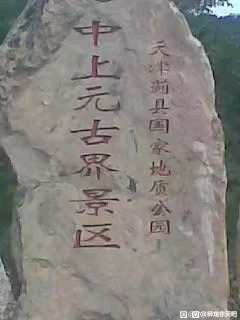 天津蓟县国家地质公园
中上元古界景区